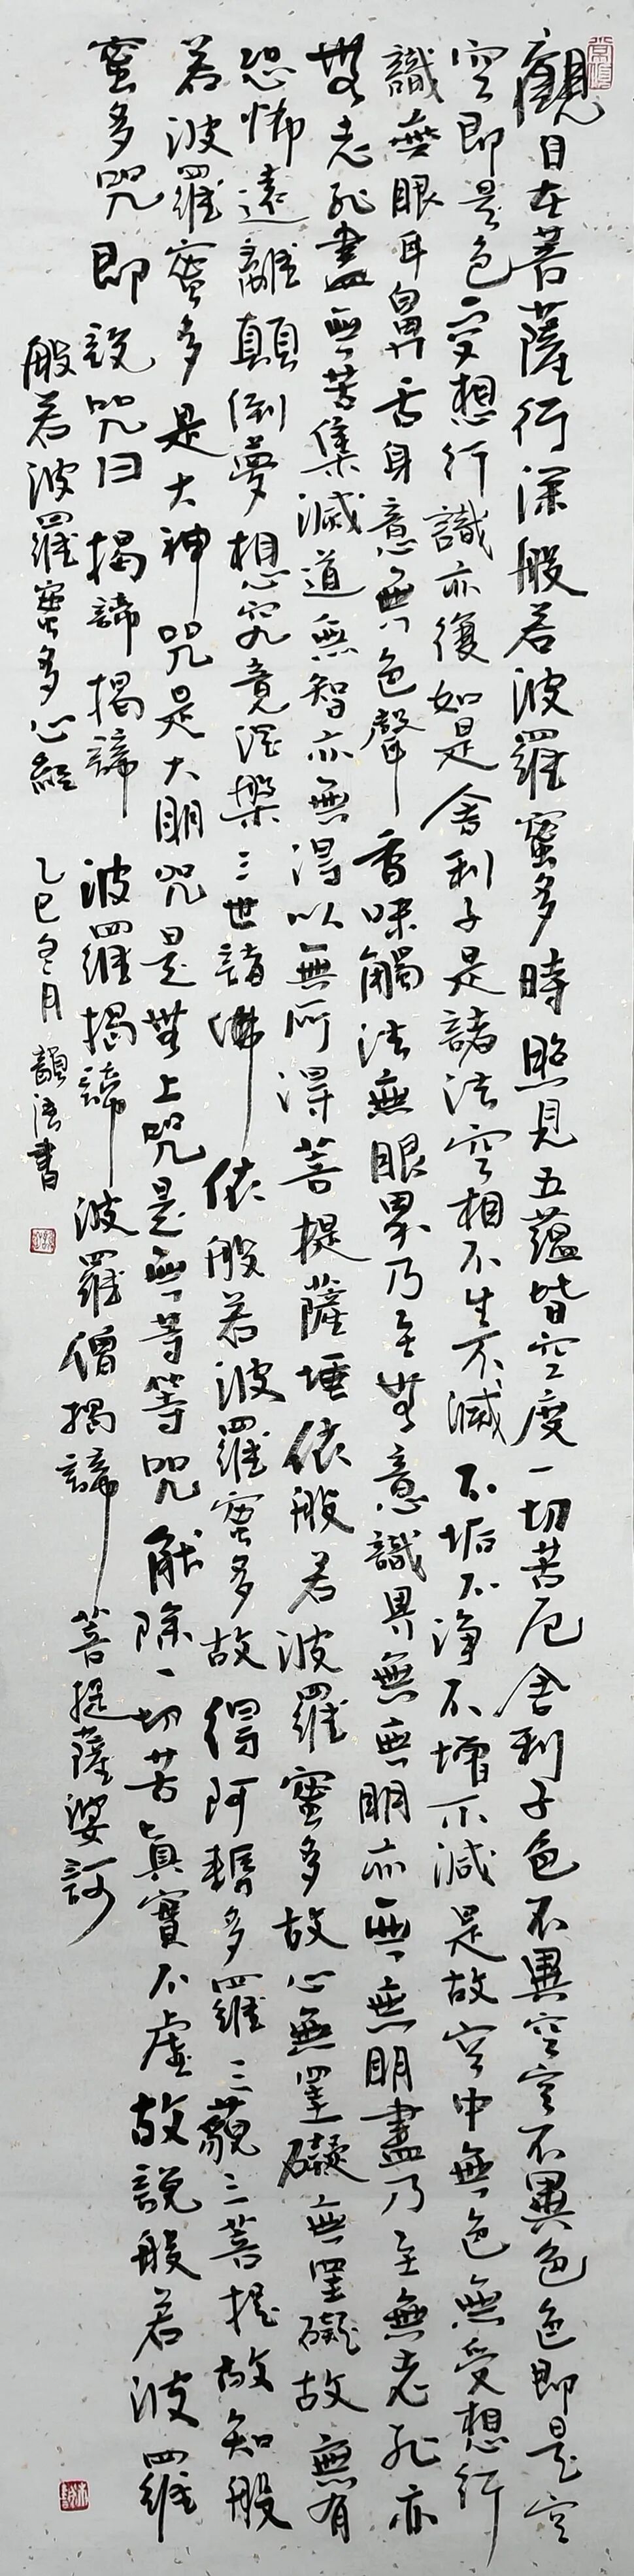 觀自在菩薩行深般若波羅蜜多時照見五蘊皆空度一切苦厄舍利子色不異空空不異色色即是空
空即是色受想行識亦復如是舍利子是諸法空相不生不滅不垢不淨不增不減是故空中無色無受想行
識無眼耳鼻舌身意無色聲香味觸法無眼界乃至無意識界無無明亦無無明盡乃至無老死亦
無老死盡無苦集滅道無智亦無得以無所得菩提薩埵依般若波羅蜜多故心無罣礙無罣礙故無有
恐怖遠離顛倒夢想究竟涅槃三世諸佛依般若波羅蜜多故得阿耨多羅三藐三菩提故知般
若波羅蜜多是大神咒是大明咒是無上咒是無等等咒能除一切苦真實不虛故說般若波羅
蜜多咒即說咒曰揭諦揭諦波羅揭諦波羅僧揭諦菩提薩婆訶
般若波羅蜜多心經 乙巳冬月 韻濤書